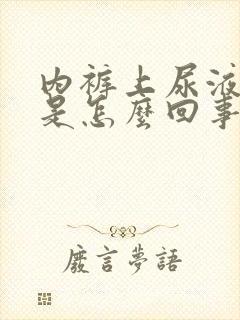 内裤上尿液
是怎麼回事
廢言夢語